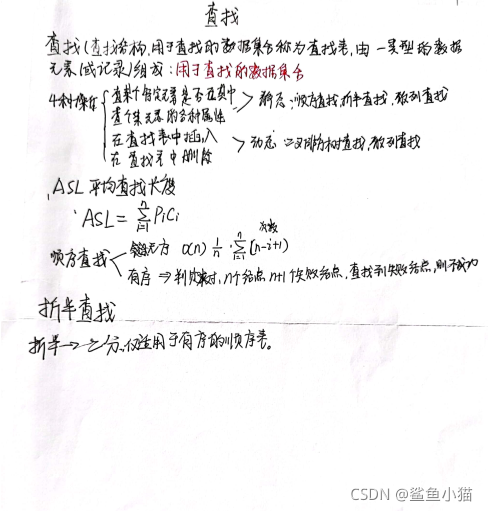 查找
查找(查找结构,用于查找的数据集合称为查找表,由一类型的数据
元素(或记录)组成:用于查找的数据集合
4种操作
查某个特定元素是否在其中
查某元素的各种属性
>静态:顺序查找,折半查找,散列查找
在查找表中插入
在查找表中删除
>动态:二叉排序树查找,散列查找
ASL 平均查找长度
ASL=∑PiCi
n
i=1
顺序查找
无序 O(n) 1/n·∑(n-i+1)
n
i=1
次数
有序 ⇒判定树,n个结点 n+1个失败结点,查找到失败结点,则不成功
折半查找
折半→二分,仅适用于有序的顺序表。
CSDN @鲨鱼小猫